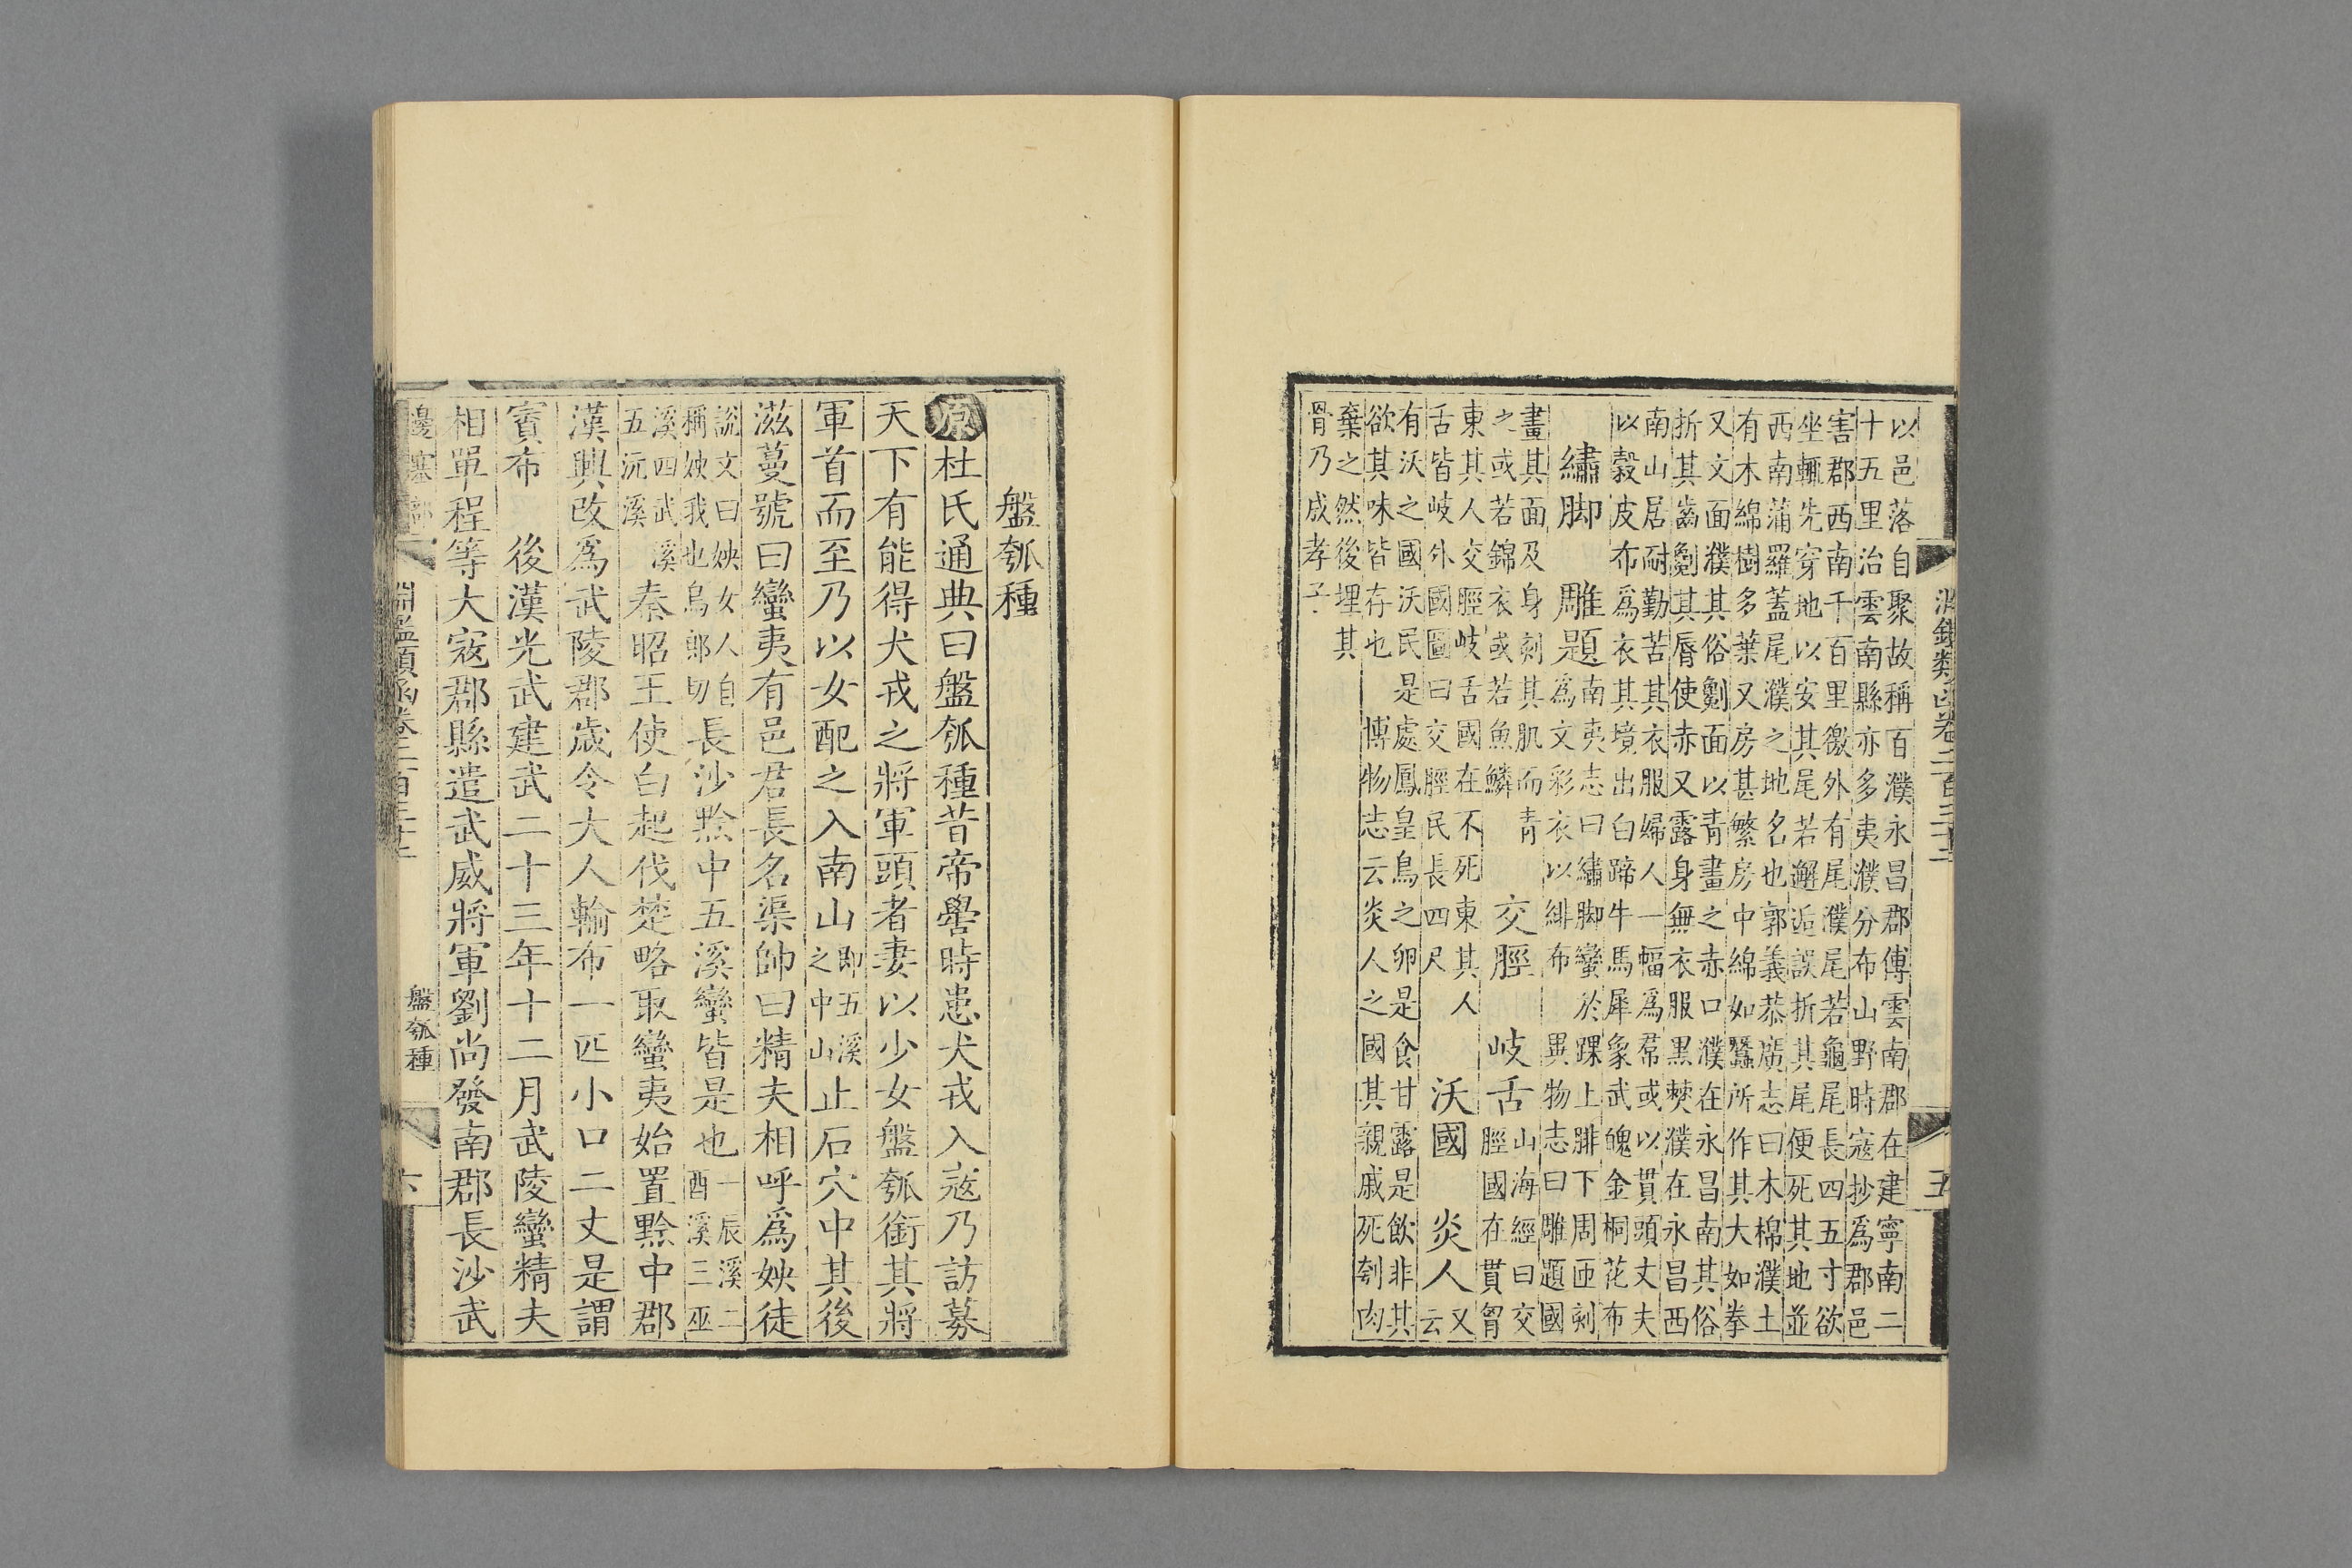 淵鑑類函卷二百三十三
五
以邑落自聚故稱百濮永昌郡傳雲南郡在建寧南二
十五里治雲南縣亦多夷濮分布山野時寇抄爲郡邑
害郡西南千百里徼外有尾濮尾若龜尾長四五寸欲
坐輒先穿地以安其尾若邂逅誤折其尾便死其地並
西南蒲羅蓋尾濮之地名也郭義恭廣志曰木棉濮土
有木綿樹多葉又房甚繁房中綿如蠶所作其大如拳
又文面濮其俗劖面以青畫之赤口濮在永昌南其俗
折其齒劖其脣使赤又露身無衣服黑僰濮在永昌西
南山居耐勤苦其衣服婦人一幅爲帬或以貫頭丈夫
以榖皮布爲衣其境出白蹄牛馬犀象武魄金桐花布
繡脚 雕題 南夷志曰繡脚蠻於踝上腓下周匝刻
爲文彩衣以緋布 異物志曰雕題國
畫其面及身刻其肌而青
之或若錦衣或若魚鱗 交脛 岐舌 山海經曰交
脛國在貫胷
東其人交脛岐舌國在不死東其人
舌皆岐外國圖曰交脛民長四尺 沃國 炎人 又
云
有沃之國沃民是處鳳皇鳥之卵是食甘露是飲非其
欲其味皆存也 博物志云炎人之國其親戚死刳肉
棄之然後埋其
骨乃成孝子
盤瓠種
原杜氏通典曰盤瓠種昔帝嚳時患犬戎入寇乃訪募
天下有能得犬戎之將軍頭者妻以少女盤瓠銜其將
軍首而至乃以女配之入南山卽五溪之中山止石穴中其後
滋蔓號曰蠻夷有邑君長名渠帥曰精夫相呼爲姎徒
說文曰姎女人自稱姎我也烏郎切長沙黔中五溪蠻皆是也一辰溪二酉溪三巫
溪四武溪五沅溪秦昭王使白起伐楚略取蠻夷始置黔中郡
漢興改爲武陵郡歲令大人輸布一匹小口二丈是謂
賨布 後漢光武建武二十三年十二月武陵蠻精夫
相單程等大寇郡縣遣武威將軍劉尚發南郡長沙武
邊塞部
淵鑑類函卷二百三十三
盤瓠種
六